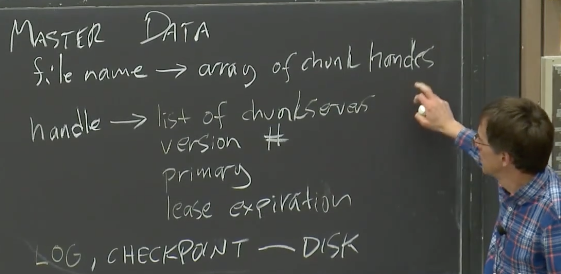 MASTER DATA
file name → array of chunk handles
handle → list of chunkservers
version #
primary
lease expiration
LOG, CHECKPOINT — DISK